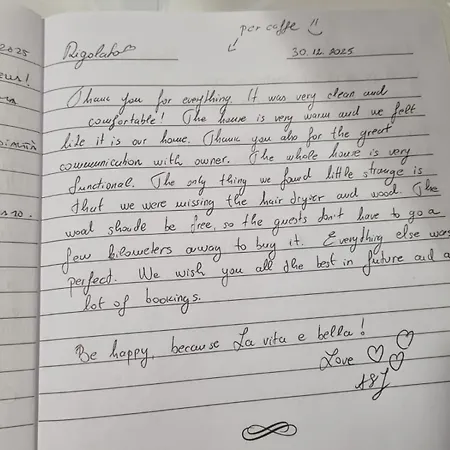 per caffe
Rigolato
30.12.2025
Thank you for everything. It was very clean and
comfortable! The house is very warm and we felt
like it is our home. Thank you also for the great
communication with owner. The whole house is very
functional. The only thing we found little strange is
that we were missing the hair dryier and wood. The
wood shoude be free, so the guests don't have to go a
few kilometers away to buy it. Everything else was
perfect. We wish you all the best in future and a
lot of bookings.
Be happy, because La vita e bella!
Love
A&J
2025